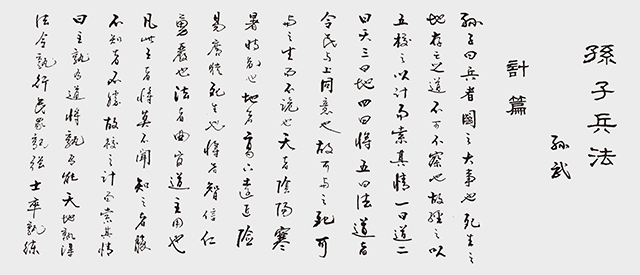 孫子兵法
計篇
孙武
孙子曰兵者國之大事也死生之
地存亡之道不可不察也故經之以
五校之以计而索其情一曰道二
曰天三曰地四曰将五曰法道者
令民与上同意也故可与之死可
与之生而不诡也天者陰陽寒
暑時制也地者高下遠近险
易廣狹死生也将者智信仁
勇嚴也法者曲官道主用也
凡此五者将莫不聞知之者勝
不知者不胜故校之计而索其情
曰主孰有道将孰有能天地孰得
法令孰行兵眾孰强士卒孰练